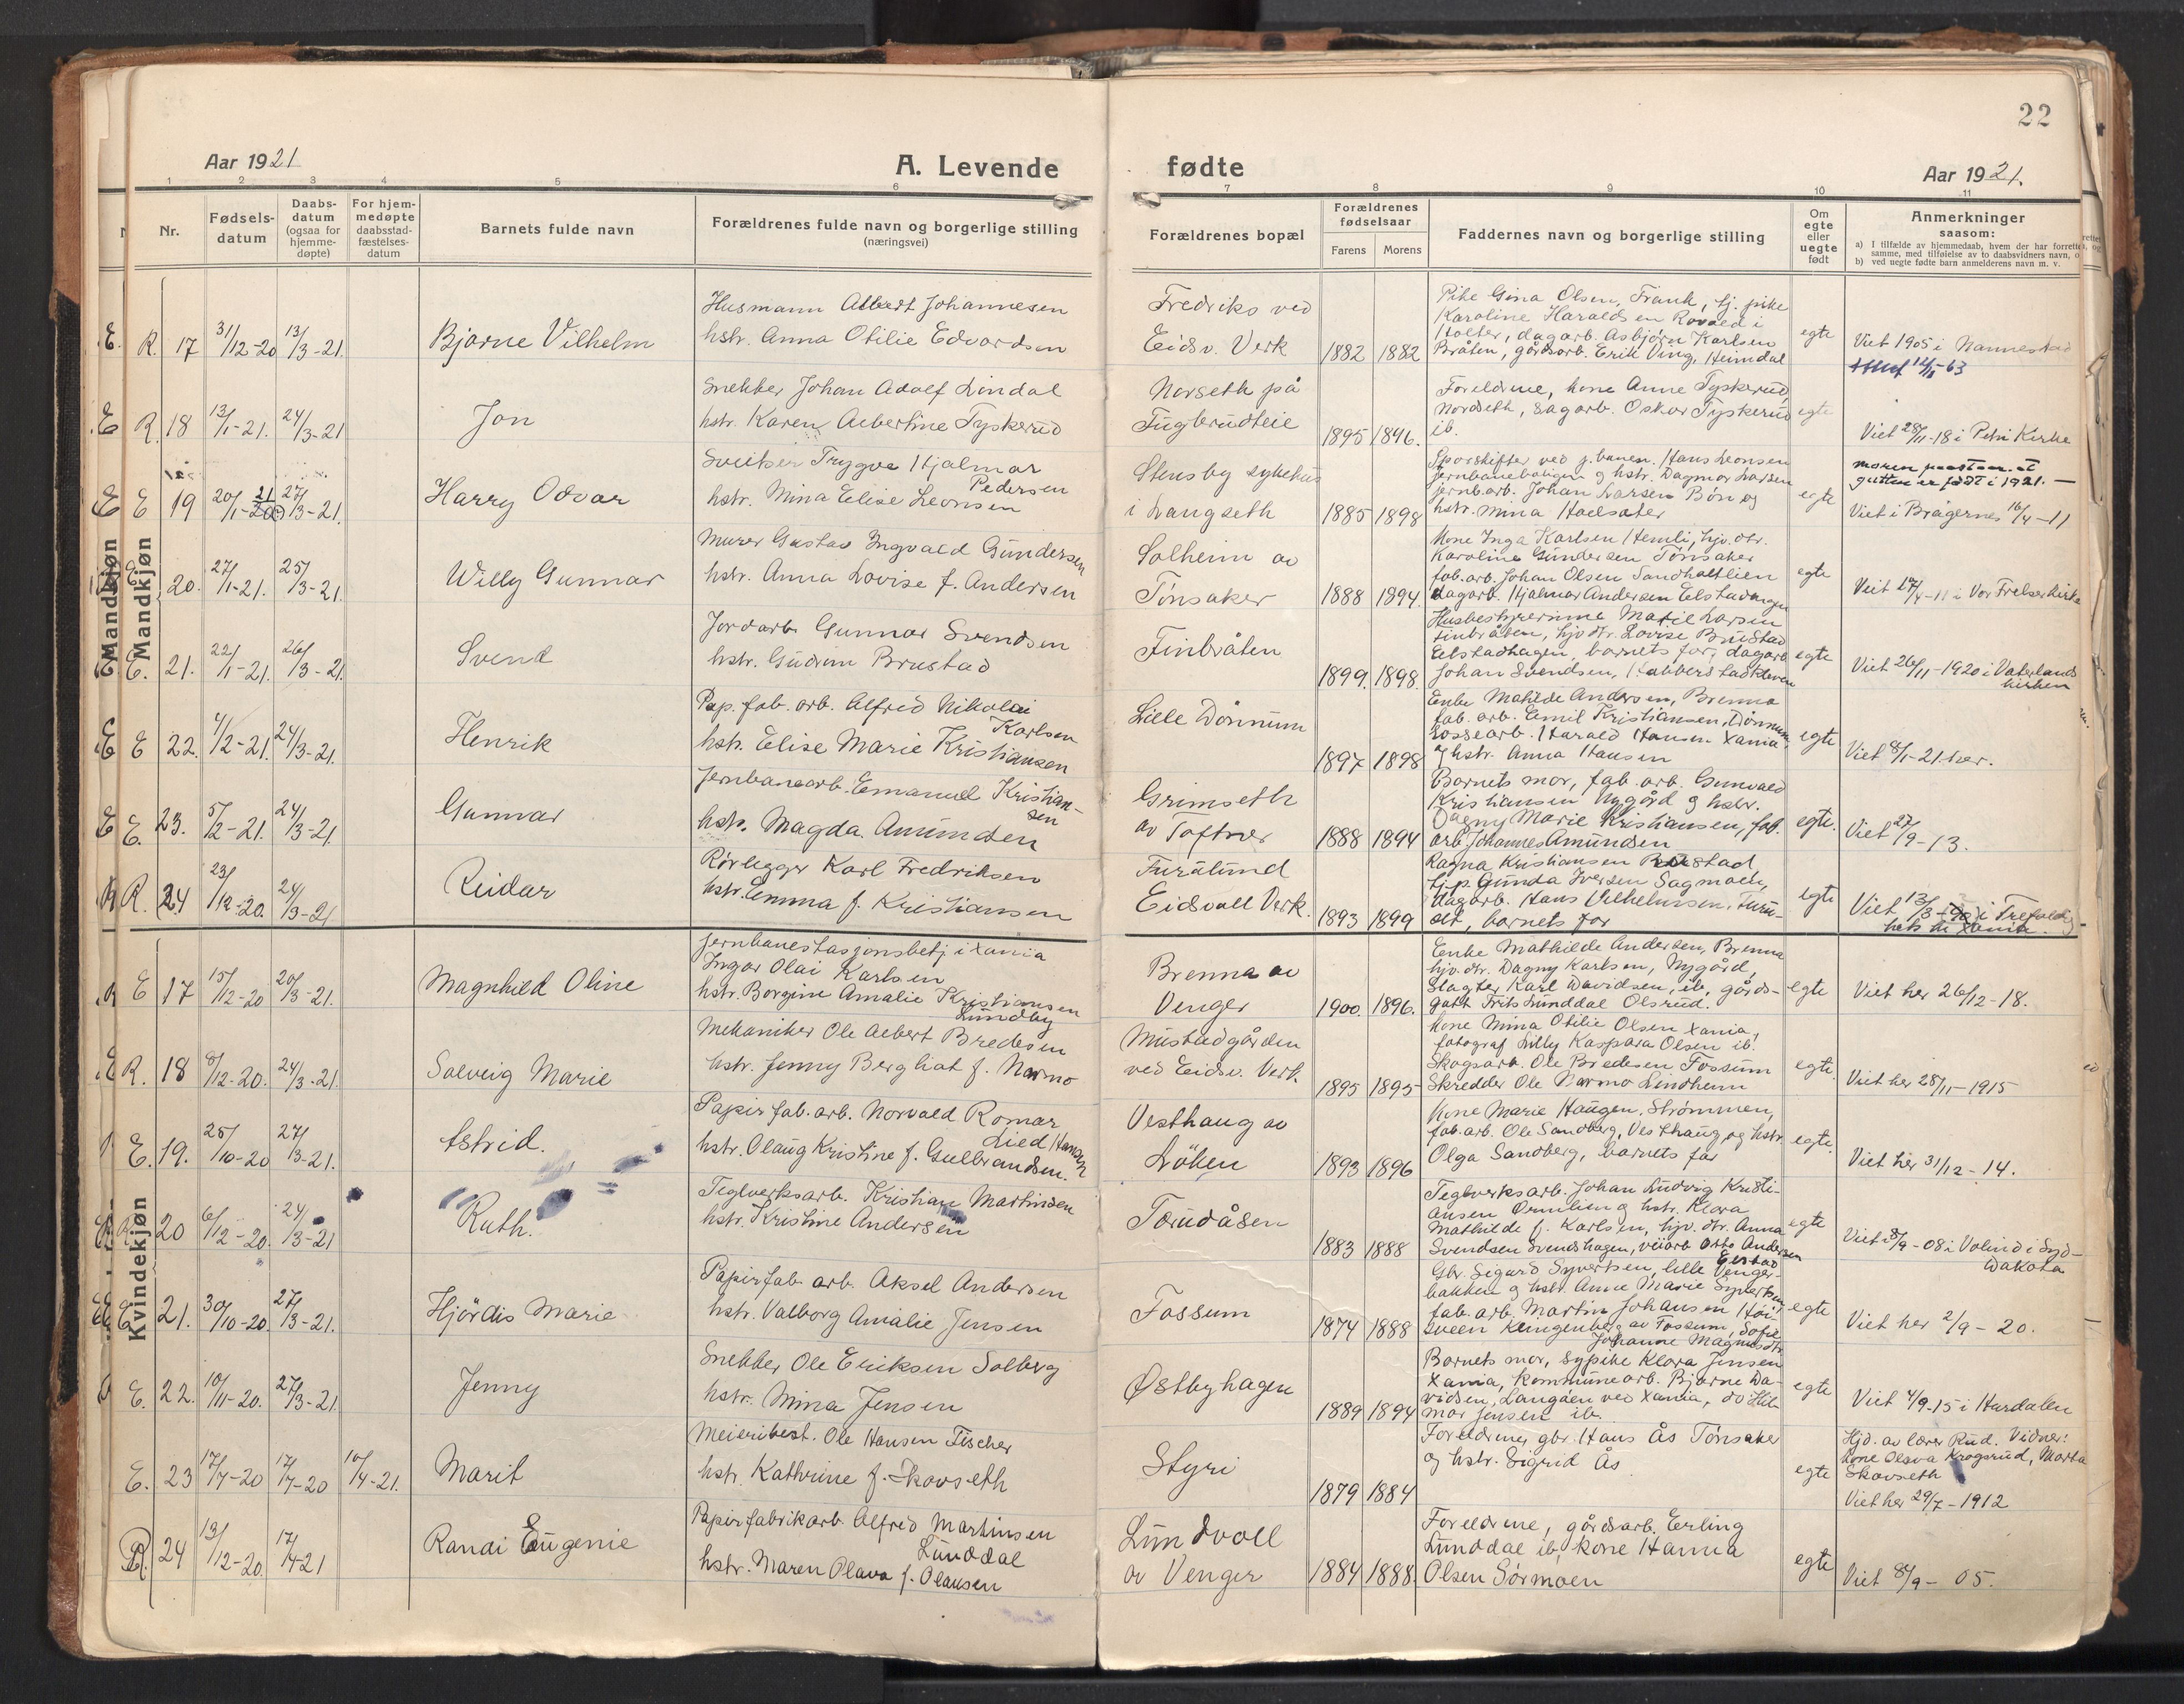 22
Aar 1921
A. Levende
fødte
Aar 1921.
1 2 3 4 5 6 7 8 9 10 11
Nr.
Fødsels-
datum
Daabs-
datum
(ogsaa for
hjemme-
døpte)
For hjem-
medøpte
daabsstad-
fæstelses-
datum
Barnets fulde navn
Forældrenes fulde navn og borgerlige stilling
(næringsvei)
Forældrenes bopæl
Forældrenes
fødselsaar
Farens Morens
Faddernes navn og borgerlige stilling
Om
egte
eller
uegte
født
Anmerkninger
saasom:
a) I tilfælde av hjemmedaab, hvem der har forrettet
samme, med tilføielse av to daabsvidners navn, o
b) ved uegte fødte barn anmelderens navn m. v.
Mandkjøn
Mandkjøn
E. R. 17 31/12-20 13/3-21
Bjarne Vilhelm
Husmann Albert Johannesen
hstr. Anna Otilie Edvardsen
Fredriks ved
Eidsv. Verk
1882 1882
Pike Gina Olsen, Frank, tj. pike
Karoline Haraldsen Rovold i
Holter, dagarb. Asbjørn Karlsen
Bråten, gårdsarb. Erik Ving, Heimdal
egte
Viet 1905 i Nannestad
E R. 18 13/1-21. 24/3-21
Jon
Snekker Johan Adolf Lindal
hstr. Karen Albertine Tyskerud
Norseth på
Fuglerudteie
1895 1896.
Foreldrene, kone Anne Tyskerud,
Nordseth, sagarb. Oskar Tyskerud
ib.
egte
Viet 28/11-18 i Petri Kirke
E E 19 20/1-20 21 27/3-21.
Harry Odvar
Sveitser Trygve Hjalmar
Pedersen
hstr. Mina Elise Leonsen
Stensby sykehus
i Langseth
1885 1898
Sporskifter ved j.banen. Hans Leonsen
Jernbaneboligen og hstr. Dagmar Larsen
jernb.arb. Johan Larsen Bøn og
hstr. Mina Hoelsæter
egte
moren paastaar at
gutten er født i 1921. —
Viet i Bragernes 16/4-11
20. 27/1-21. 25/3-21.
Willy Gunnar
Murer Gustav Ingvald Gundersen
hstr. Anna Lovise f. Andersen
Solheim av
Tønsaker
1888 1894.
Kone Inga Karlsen Hemli, hjv. dtr.
Karoline Gundersen Tønsaker
fab.arb. Johan Olsen Sandholtlien
dagarb. Hjalmar Andersen Elstadhagen
egte
Viet 17/4-11 i Vor Frelser kirke
E. 21. 22/1-21. 26/3-21.
Svend
Jordarb. Gunnar Svendsen
hstr. Gudrun Brustad
Finbråten
1899. 1898.
Husbestyrerinne Matil Larsen
Finbråten, hjv dtr. Lovise Brustad
Elstadhagen, barnets far, dagarb
Johan Svendsen, Habberstadkleven
egte
Viet 26/11-1920 i Vaterlands
kirken
E E 22. 4/2-21. 24/3-21.
Henrik
Pap. fab. arb. Alfred Nikolai
Karlsen
hstr. Elise Marie Kristiansen
Lille Dønnum
1897 1898
Enke Matilde Andersen, Brenna
fab. arb. Emil Kristiansen, Dønnum
Lossearb. Harald Hansen Xania
og hstr. Anna Hansen
egte
Viet 8/1-21 her.
E E. 23. 5/2-21. 24/3-21.
Gunnar
Jernbanearb. Emanuel Kristian-
sen
hstr. Magda Amundsen
Grimseth
av Toftner
1888 1894
Barnets mor, fab. arb. Gunvald
Kristiansen Nygård og hstr.
Dagny Marie Kristiansen, fab.
arb. Johannes Amundsen
egte.
Viet 27/9-13.
R. 24 23/12-20. 24/3-21
Reidar
Rørlegger Karl Fredriksen
hstr. Emma f. Kristiansen
Furulund
Eidsvoll Verk.
1893 1899
Ragna Kristiansen Brustad
tj.p. Gunda Iversen Sagmoen,
dagarb. Hans Vilhelmsen, Furu-
set, barnets far
egte
Viet 13/3-20 i Trefoldig-
hets k. Xania.
Kvindekjøn
E 17 15/12-20 20/3-21.
Magnhild Oline
Jernbanestasjonsbetj. i Xania
Ingar Olai Karlsen
hstr. Borgine Amalie Kristiansen
Lundby
Brenna av
Venger
1900. 1896.
Enke Mathilde Andersen, Brenna
hjv. dtr. Dagny Karlsen, Nygård,
Slagter Karl Davidsen, ib, gårds-
gutt Frits Lunddal Olsrud.
egte
Viet her 26/12-18.
E R. 18 8/12-20. 24/3-21.
Solveig Marie
Mekaniker Ole Albert Bredesen
hstr. Jenny Bergliot f. Narmo
Mustadgården
ved Eidsv. Verk.
1895 1895
Kone Mina Otilie Olsen Xania,
fotograf Lilly Kaspara Olsen ib.
Skogsarb. Ole Bredesen Fossum
Skredder Ole Narmo Lindheim
egte.
Viet her 28/11-1915
E. 19. 25/10-20 27/3-21.
Astrid.
Papirfab. arb. Norvald Romar
Lied Hansen
hstr. Olaug Kristine f. Gulbrandsen.
Vesthaug av
Løken
1893 1896
Kone Marie Haugen, Strømmen,
fab.arb. Ole Sandberg, Vesthaug og hstr
Olga Sandberg, barnets far
egte.
Viet her 31/12-14.
R. 20 6/12-20. 24/3-21
Ruth.
Teglverksarb. Kristian Martinsen
hstr. Kristine Andersen
Torudåsen
1883 1888
Teglverksarb. Johan Ludvig Kristi-
ansen Ormlien og hstr. Klara
Mathilde f. Karlsen, hjv. dtr. Anna
Svendsen Svendshagen, veiarb Otto Andersen
Elstad
egte
Viet /9-08 i Volind i Syd-
Dakota
E 21. 30/10-20. 27/3-21.
Hjördis Marie
Papirfab. arb. Aksel Andersen
hstr. Valborg Amalie Jensen
Fossum
1874 1888
Gbr. Sigurd Syvertsen, lille Venger-
bakken og hstr. Anne Marie Syvertsen
fab. arb. Martin Johansen Høi-
sveen Klingenberg av Fossum, Sofie
Johanne Magnusdtr.
egte
Viet her 2/9-20.
E. 22. 10/11-20. 27/3-21
Jenny
Snekker Ole Eriksen Solberg
hstr. Mina Jensen
Østbyhagen
1889 1894
Barnets mor, sypike Klara Jensen
Xania, kommunearb. Bjarne Da-
vidsen, Langåen ved Xania, do Hil-
mar Jensen ib.
egte
Viet 4/9-15 i Hurdalen
E. 23 17/7-20 17/7-20 10/4-21.
Marit
Meieribest. Ole Hansen Fischer
hstr. Kathrine f. Skovseth
Styri
1879 1884
Foreldrene, gbr. Hans Ås Tønsaker
og hstr. Sigrid Ås
egte
Hjd. av lærer Rud. Vidner:
Kone Olava Krogsrud, Marta
Skovseth
Viet her 29/7-1912
R. 24 13/12-20. 17/4-21
Randi Eugenie
Papirfabrikarb. Alfred Martinsen
Lunddal
hstr. Maren Olava f. Olausen
Lundvoll
av Venger
1884 1888.
Foreldrene, gårdsarb. Erling
Lunddal ib, kone Hanna
Olsen Sørmoen
egte
Viet 8/9-05.